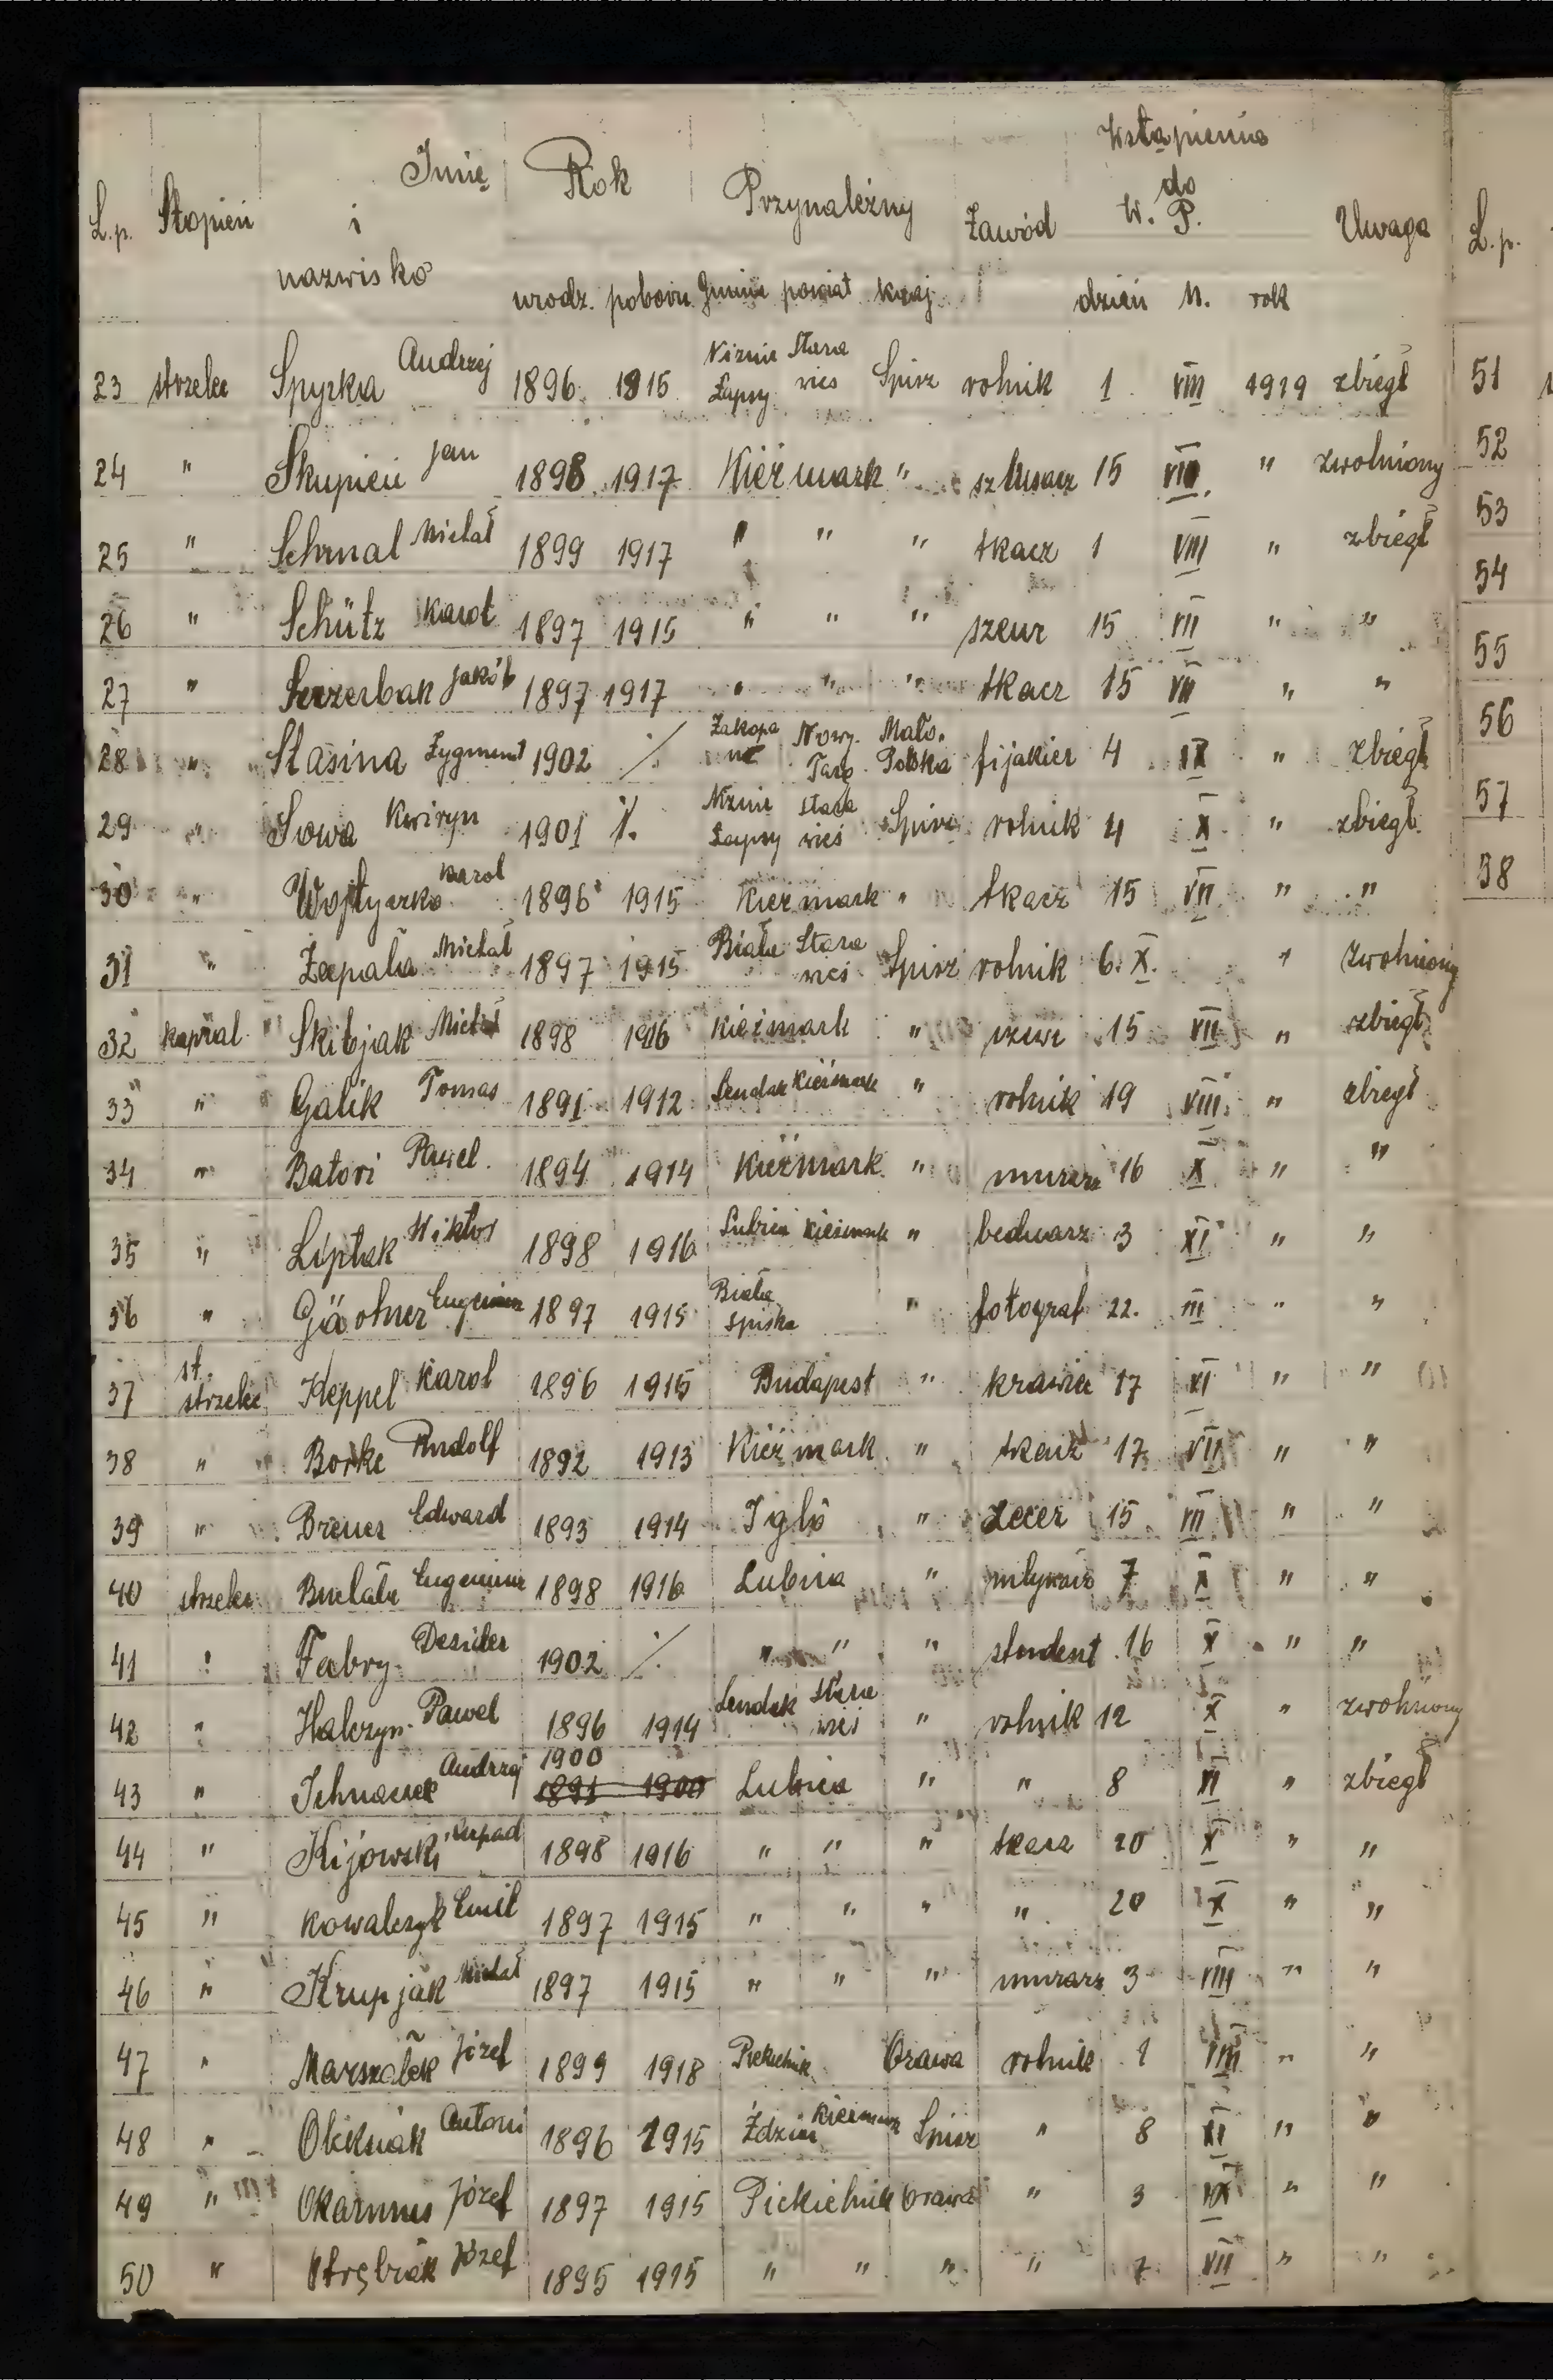 Wstąpienia
Imię Rok do
L.p. Stopień i Przynależny Zawód W. P. Uwaga L.p.
nazwisko urodz. poboru Gmina powiat kraj dzień M. rok
23 strzelec Spyrka Andrzej 1896 1815 Niznie Łapsy Stara wieś Spisz rolnik 1 VIII 1919 zbiegł 51
24 " Skupień Jan 1898 1917 Kieżmark " 15 " zwolniony 52
25 " Schmal Michał 1899 1917 " " " tkacz 1 VIII " zbiegł 53
26 " Schütz Karol 1897 1915 " " " szewc 15 VII " " 54
27 " Jakób 1897 1917 " " " tkacz 15 VII " " 55
28 " Stasina Zygmunt 1902 ./. Zakopane Nowy Targ Mało. Polska fijakier 4 IX " zbiegł 56
29 " Sowa Kwiryn 1901 ./. Niznie Łapsy Stara wieś Spisz rolnik 4 X " zbiegł 57
30 " Karol 1896 1915 Kieżmark " tkacz 15 VII " " 58
31 " Michał 1897 1915 Biała Stara wieś Spisz rolnik 6. X. " zwolniony
32 kapral Skibjak Michał 1898 1916 Kieżmark " szewc 15 VII " zbiegł
33 " Galik Tomas 1891 1912 Lendak Kieżmark " rolnik 19 VIII " zbiegł
34 " Batori Paweł 1894 1914 Kieżmark " murarz 16 X " "
35 " Liptak Wiktor 1898 1916 Lubica Kieżmark " bednarz 3 XI " "
36 " Eugeniusz 1897 1915 Biała Spiska " fotograf 22. III " "
37 st. strzelec Keppel Karol 1896 1915 Budapest " krawiec 17 XI " "
38 " Borke Rudolf 1892 1913 Kieżmark " tkacz 17 VII " "
39 " Breuer Edward 1893 1914 Igló " zecer 15 VII " "
40 strzelec Eugeniusz 1898 1916 Lubica " 7 X " "
41 " Fabry Desider 1902 ./. " " " student 16 X " "
42 " Halczyn Paweł 1896 1914 Lendak Stara wieś " rolnik 12 X " zwolniony
43 " Andrzej 1900 1891 1900 Lubica " " 8 XI " zbiegł
44 " Kijowski Arpad 1898 1916 " " " tkacz 20 X " "
45 " Kowalczyk Emil 1897 1915 " " " " 20 X " "
46 " Krupjak Michał 1897 1915 " " " murarz 3 VIII " "
47 " Marszałek Józef 1899 1918 Piekielnik Orawa rolnik 1 VIII " "
48 " Antoni 1896 1915 Ździar Kieżmark Spisz " 8 XI " "
49 " Okarmus Józef 1897 1915 Piekielnik Orawa " 3 IX " "
50 " Józef 1895 1915 " " " " 7 VII " "